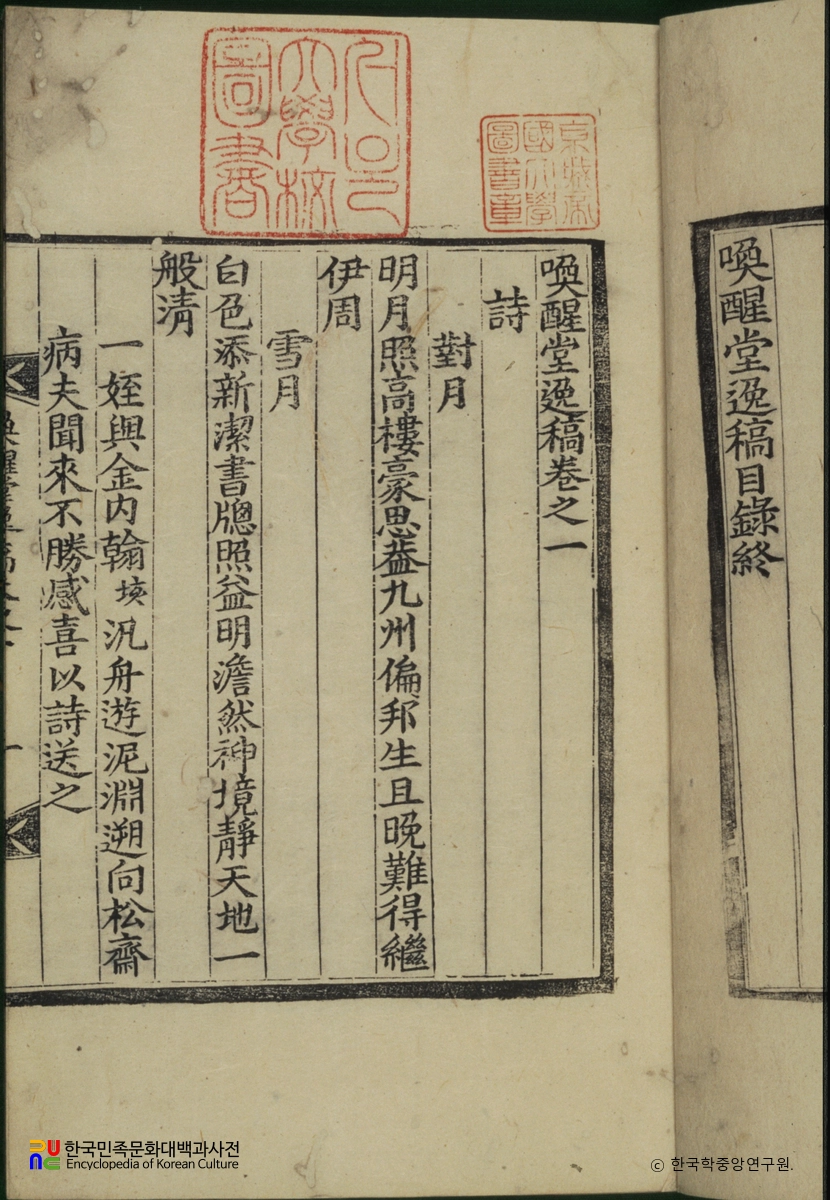 喚醒堂逸稿目錄終
喚醒堂逸稿卷之一
詩
對月
明月照高樓豪思益九州偏邦生且晩難得繼
伊周
雪月
白色添新潔書牕照益明澹然神境靜天地一
般清
一姪與金內翰 㙉 汎舟遊泥淵遡向松齋
病夫聞來不勝感喜以詩送之
京城帝
國大學
圖書章
大學校
圖書
한국민족문화대백과사전
Encyclopedia of Korean Culture
© 한국학중앙연구원.